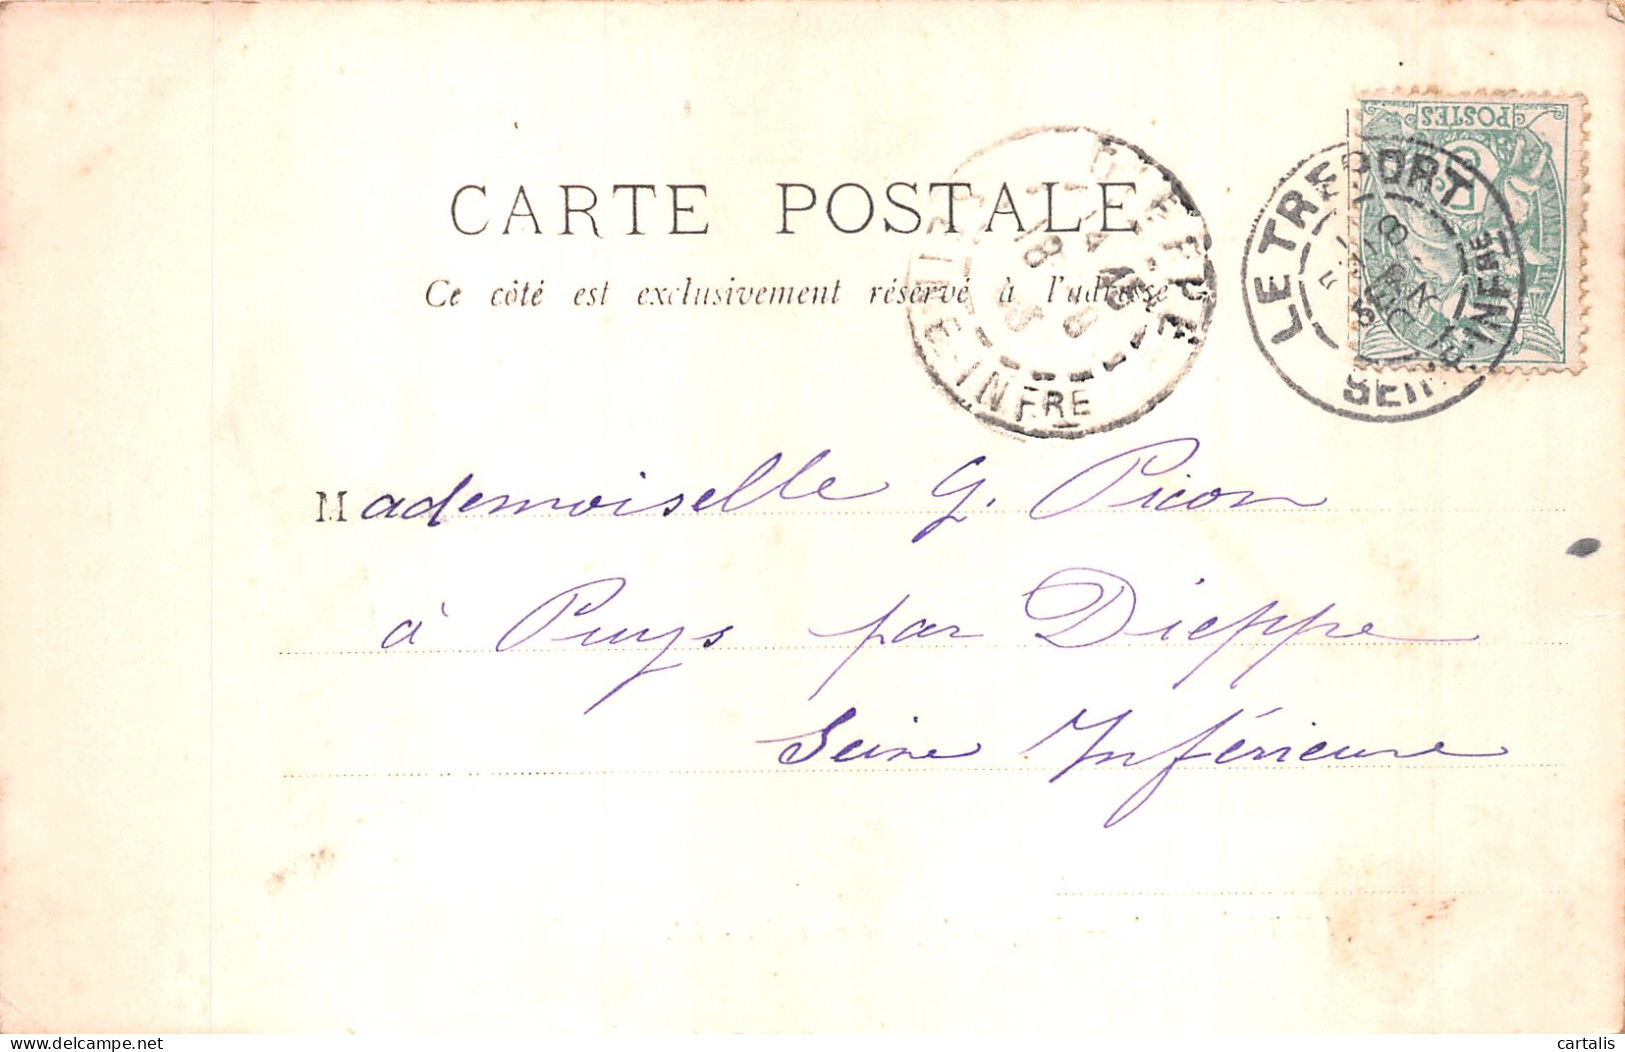 CARTE POSTALE
Ce côté est exclusivement réservé à l'adresse
POSTES
5c
LE TREPORT
SEINE-INFRE
DIEPPE
INFRE
Mademoiselle G. Picon
à Puys par Dieppe
Seine Inférieure
delcampe.net
cartalis